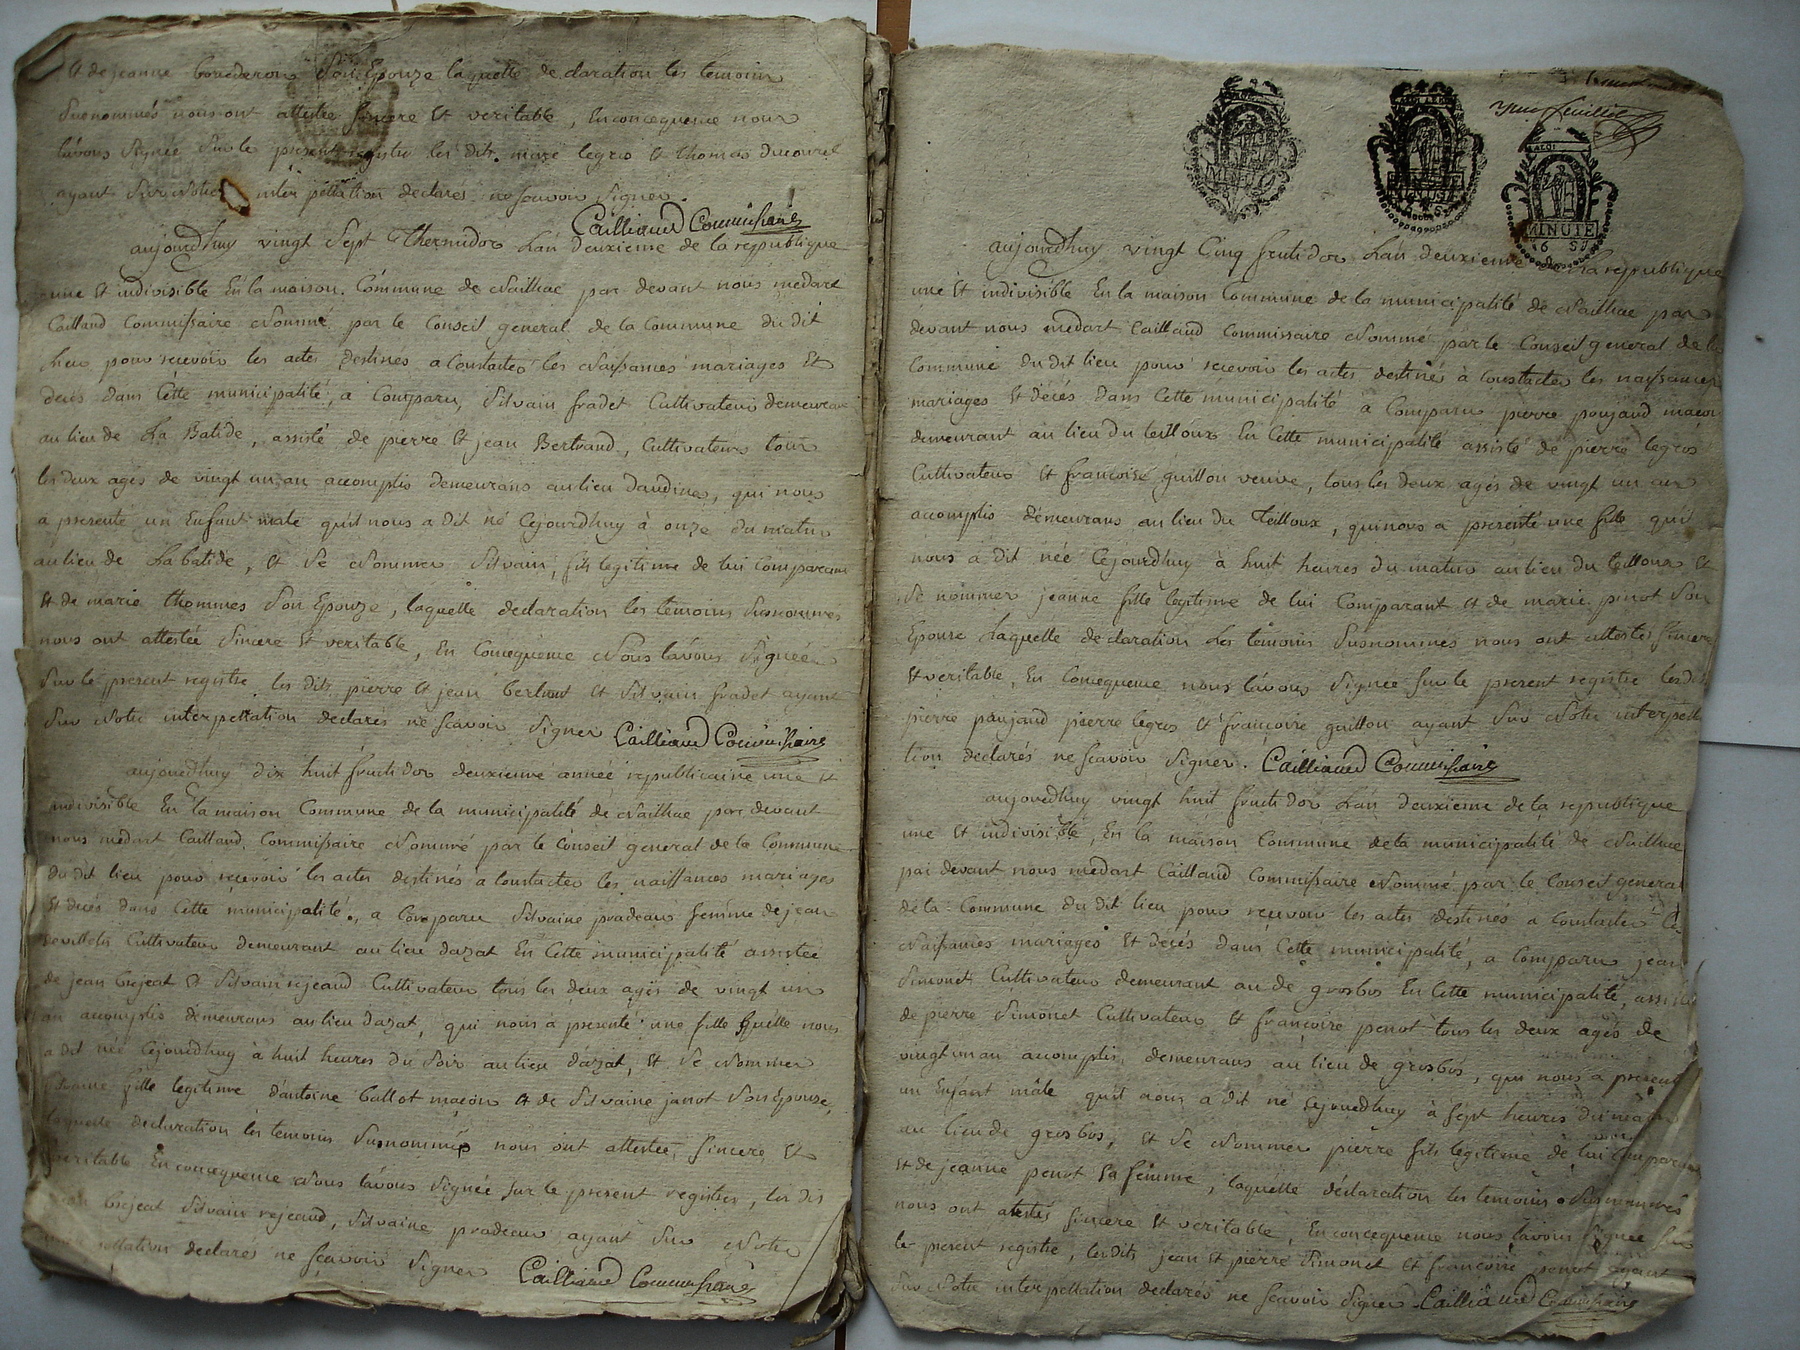 et de jeanne bourderon Son Epouze laquelle declaration les temoins
Susnommés nous ont attestée sincere Et veritable, En consequence nous
lavons Signée Sur le present registre les dits marc legros Et thomas
ayant Sur Notre interpellation declarés ne scavoir Signer.
Cailliaud Commissaire
aujourdhuy vingt Sept Thermidor Lan deuxieme de la republique
une Et indivisible En la maison Commune de Naillac par devant nous medart
Caillaud Commissaire Nommé par le Conseil general de la Commune du dit
lieu pour recevoir les actes destines a Constater les Naissances mariages Et
decés dans Cette municipalité, a Comparu, Silvain fradet Cultivateur demeurant
au lieu de La Batide, assisté de pierre Et jean Bertrand, Cultivateurs tous
les deux agés de vingt un an accomplis demeurans au lieu daudines, qui nous
a presenté un Enfant male quil nous a dit né Cejourdhuy à onze du matin
au lieu de Labatide, Et Se Nommer Silvain, fils legitime de lui Comparant
Et de marie thommes Son Epouze, laquelle declaration les temoins Susnommes
nous ont attestée Sincere Et veritable, En Consequence Nous lavons Signée
Sur le present registre les dits pierre Et jean bertrant Et Silvain fradet ayant
Sur Notre interpellation declarés ne Scavoir Signer Cailliaud Commissaire
aujourdhuy dix huit fructidor deuxieme année republicaine une et
indivisible En la maison Commune de la municipalité de Naillac par devant
nous medart Caillaud Commissaire Nommé par le Conseil general de la Commune
du dit lieu pour recevoir les actes destinés a Constater les naissances mariages
Et decés dans Cette municipalité, a Comparu Silvaine pradeau femme de jean
Cultivateur demeurant au lieu dazat En Cette municipalité assistée
de jean brejeat Et Silvain rejeaud Cultivateurs tous les deux agés de vingt un
an accomplis demeurans au lieu dazat, qui nous a presenté une fille quelle nous
a dit née Cejourdhuy à huit heures du Soir au lieu dazat, Et Se Nommer
fille legitime dantoine ballot maçon et de Silvaine janot Son Epouze,
laquelle declaration les temoins Susnommés nous ont attestée, Sincere Et
veritable En consequence Nous lavons Signée Sur le present registre, les dis
jean brejeat Silvain rejeaud, Silvaine pradeau ayant Sur Notre
interpellation declarés ne Scavoir Signer Cailliaud Commissaire
feuillet
MINUTE
MINUTE
MINUTE
aujourdhuy vingt Cinq fructidor Lan deuxieme de la republique
une Et indivisible En la maison Commune de la municipalité de Naillac par
devant nous medart Caillaud Commissaire Nommé par le Conseil general de la
Commune du dit lieu pour recevoir les actes destinés à Constater les naissances
mariages Et décés dans Cette municipalité a Comparu pierre poujaud maçon
demeurant au lieu du teilloux En Cette municipalité assisté de pierre legros
Cultivateur Et francoise guillon veuve, tous les deux agés de vingt un an
accomplis demeurans au lieu du Teilloux, qui nous a presenté une fille quil
nous a dit née Cejourdhuy à huit heures du matin au lieu du teilloux Et
Se nommer jeanne fille legitime de lui Comparant et de marie pinot Son
Epouse Laquelle declaration Les temoins Susnommés nous ont attestés Sincere
Et veritable, En Consequence nous lavons Signée Sur le present registre les dits
pierre poujaud pierre legros Et francoise guillon ayant Sur Notre interpella
tion declarés ne Scavoir Signer. Cailliaud Commissaire
aujourdhuy vingt huit fructidor Lan deuxieme de la republique
une Et indivisible, En la maison Commune de la municipalité de Naillac
par devant nous medart Caillaud Commissaire Nommé par le Conseil general
de la Commune du dit lieu pour recevoir les actes destinés a Constater les
Naissances mariages Et decés dans Cette municipalité, a Comparu jean
Simonet Cultivateur demeurant au de grosbos En Cette municipalité, assisté
de pierre Simonet Cultivateur Et francoise penot tous les deux agés de
vingt un an accomplis demeurans au lieu de grosbos, qui nous a presenté
un Enfant mâle quil nous a dit né Cejourdhuy à Sept heures du matin
au lieu de grosbos, Et Se Nommer pierre fils legitime de lui Comparant
Et de jeanne penot Sa femme, laquelle déclaration les temoins Susnommés
nous ont attestés Sincere Et veritable, En consequence nous lavons Signée Sur
le present registre, les dits jean Et pierre Simonet Et francoise penot ayant
Sur Notre interpellation declarés ne Scavoir Signer Cailliaud Commissaire